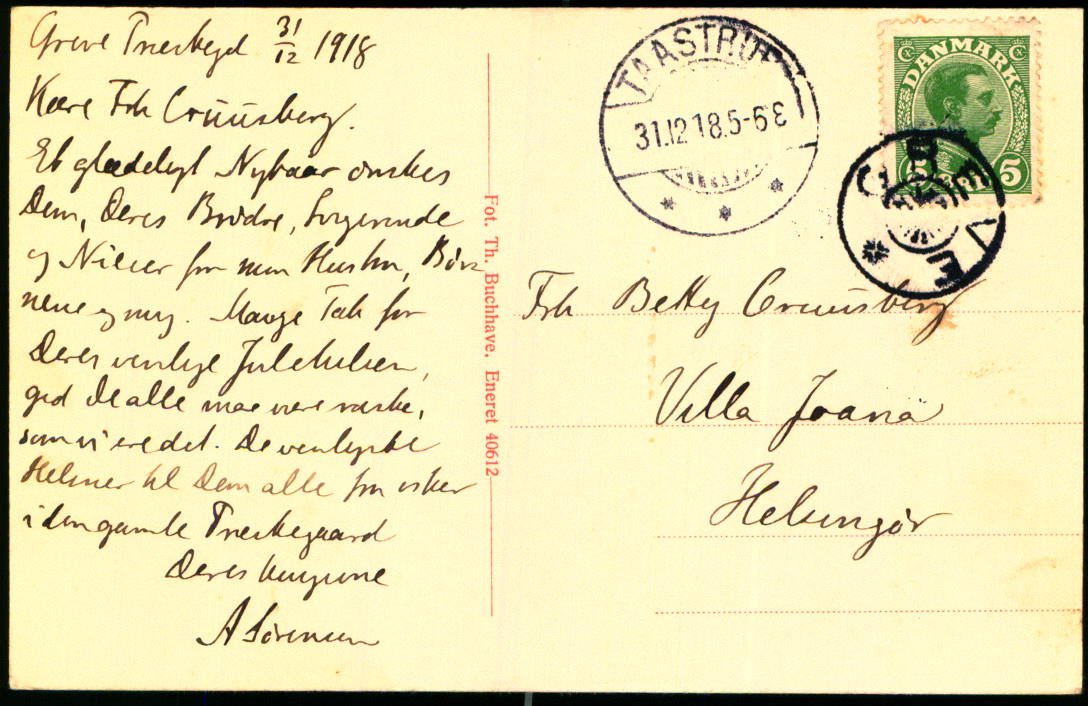 Greve Præstegd 31/12 1918
Kære Frk Cruusberg.
Et glædeligt Nytaar ønskes
Dem, Deres Brødre,
og Niecer fra min Hustru, Bør
nene og mig. Mange Tak for
Deres venlige Julehilsen,
gid De alle maa være raske,
som vi er det. De venligste
Hilsner til Dem alle fra
i den gamle Præstegaard
Deres
A Sørensen
Fot. Th. Buchhave. Eneret 40612
TAASTRUP
31.12.18.5-6 E
DANMARK
5 5
GREVE
Frk Betty Cruusberg
Villa Joana
Helsingør